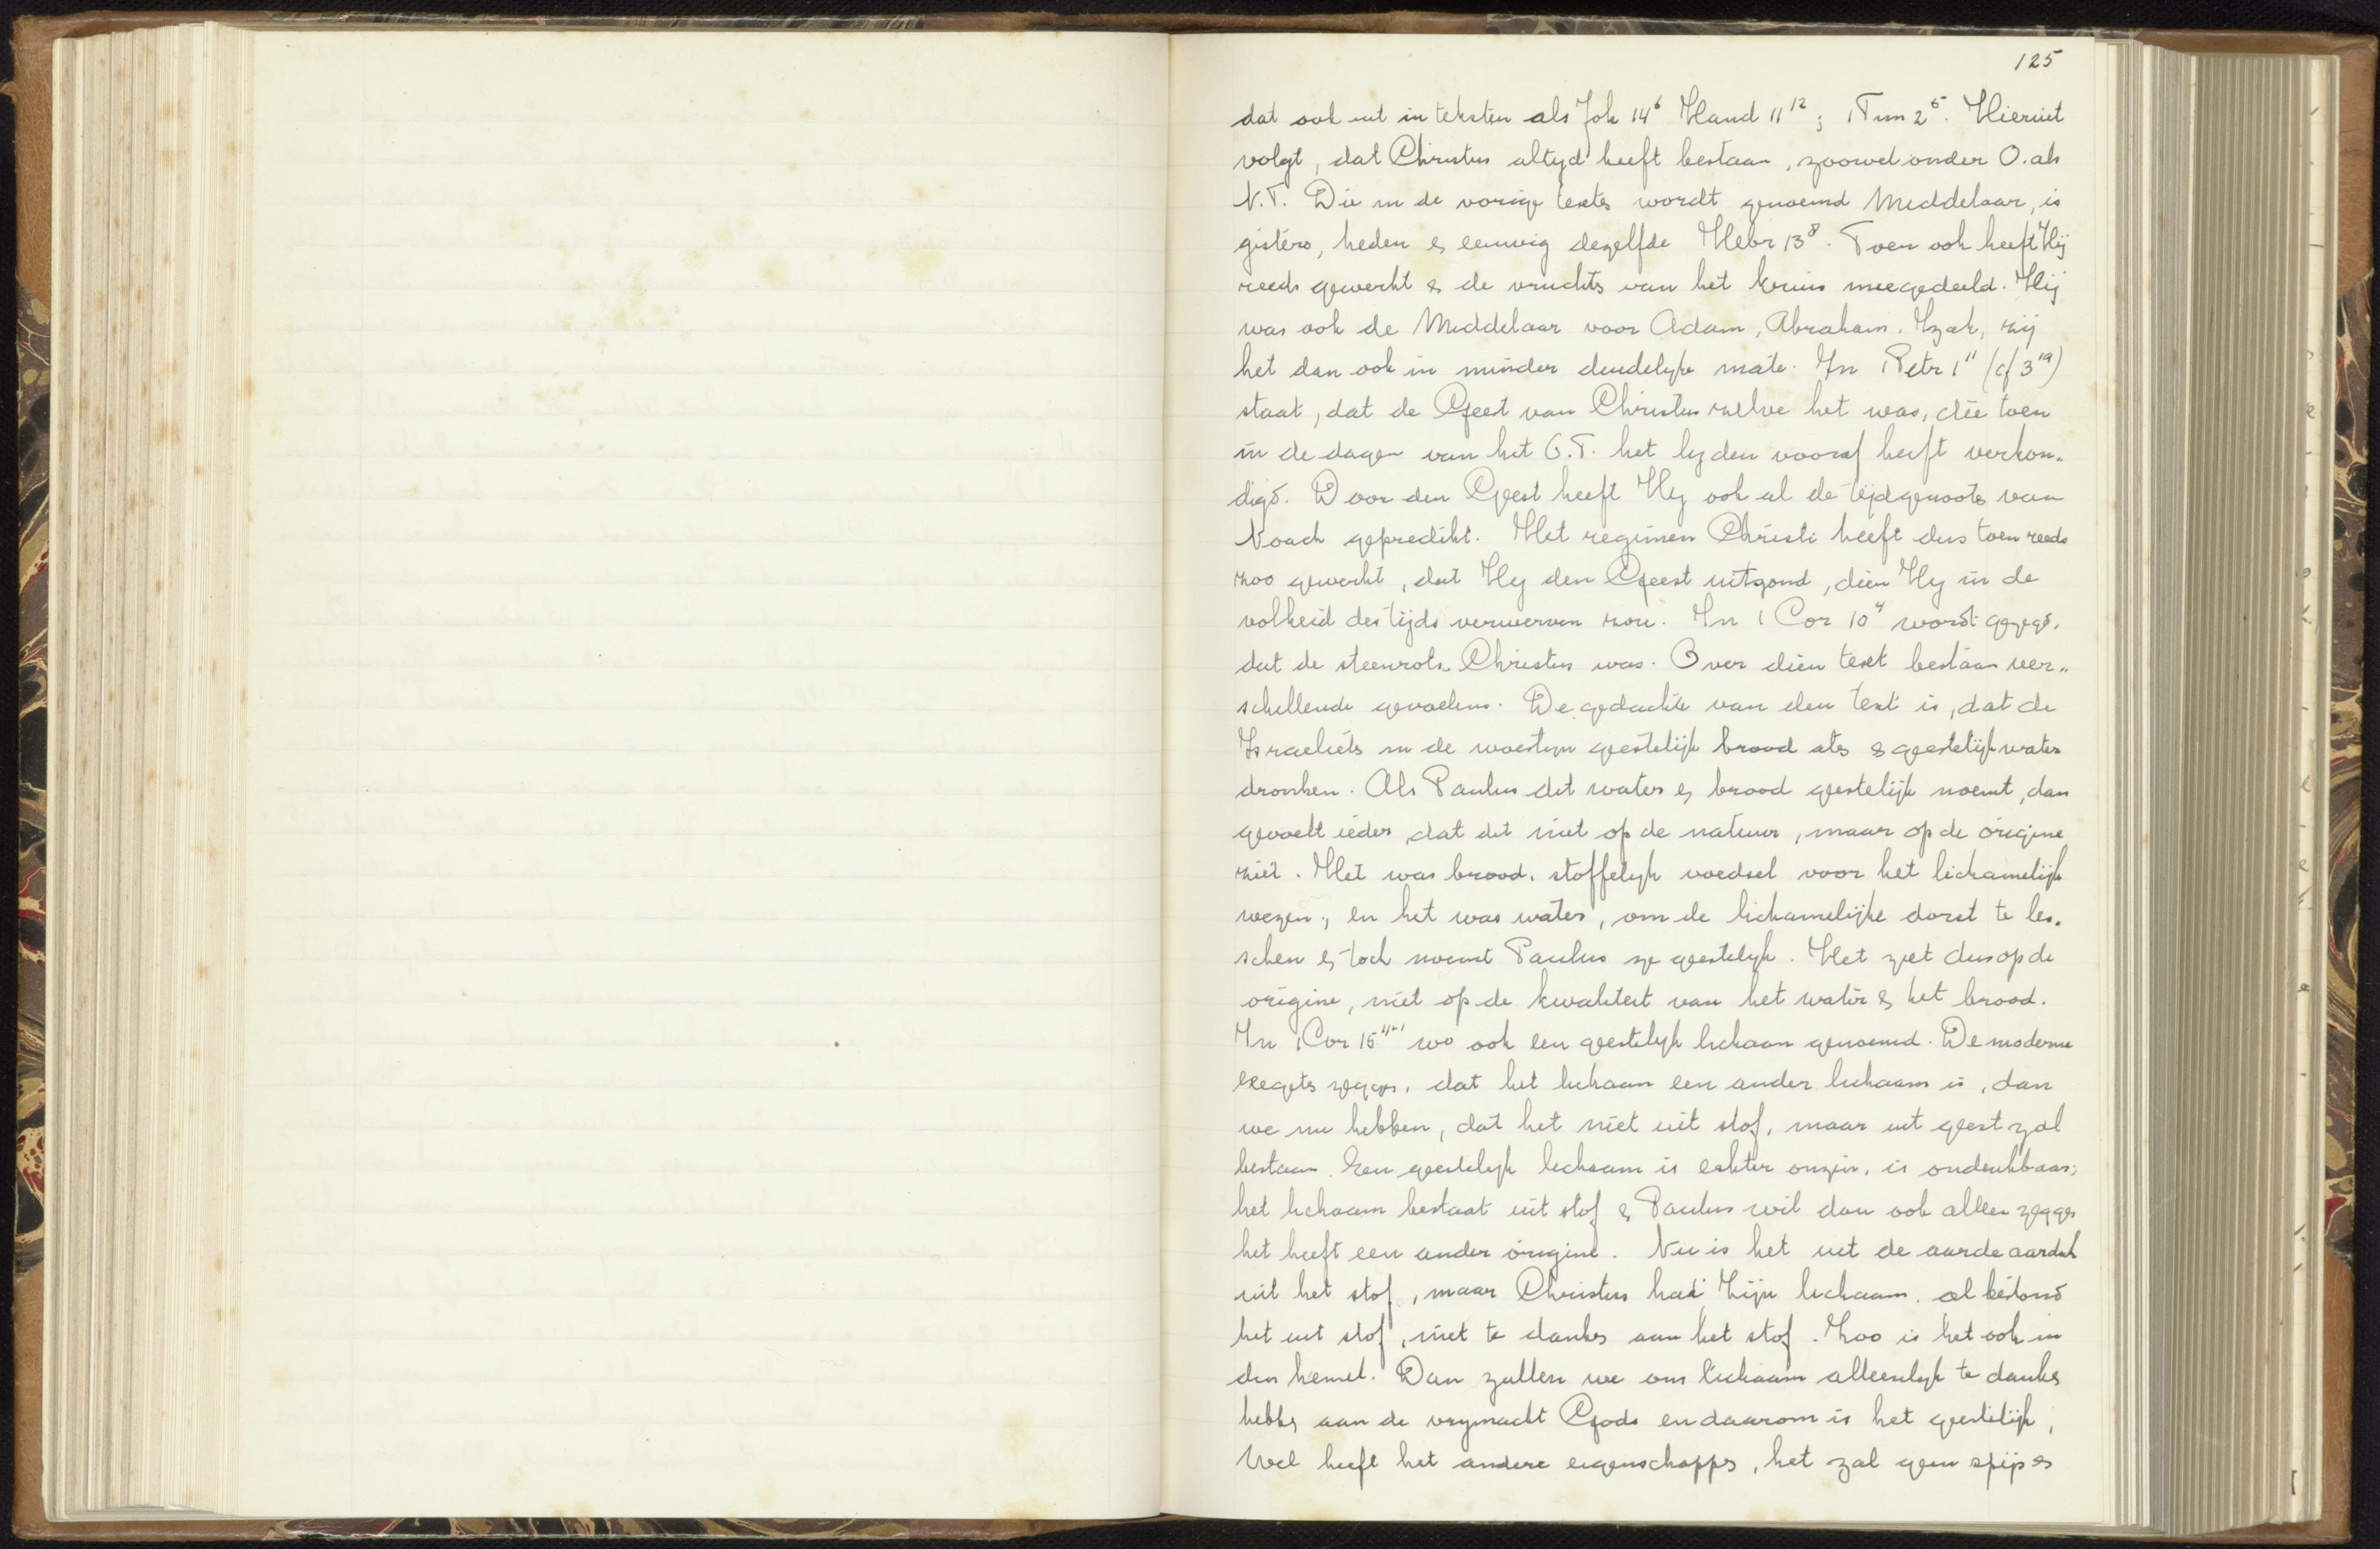 125
dat ook uit in teksten als Joh 14⁶ Hand 11¹²; 1 Tim 2⁵. Hieruit
volgt, dat Christus altyd heeft bestaan, zoowel onder O. als
N.T. Die in de vorige textes wordt genoemd Middelaar, is
gisteren, heden & eeuwig dezelfde Hebr 13⁸. Toen ook heeft Hij
reeds gewerkt & de vruchten van het kruis meegedeeld. Hij
was ook de Middelaar voor Adam, Abraham, Izak, zij
het dan ook in minder duidelyke mate. In 1 Petr 1¹¹ (cf 3¹⁹)
staat, dat de Geest van Christus zelve het was, die toen
in de dagen van het O.T. het lyden vooraf heeft verkon„
digd. Door den Geest heeft Hy ook al de tijdgenooten van
Noach gepredikt. Het regimen Christi heeft dus toen reeds
zoo gewerkt, dat Hy den Geest uitzond, dien Hy in de
volheid des tijds verwerven zou. In 1 Cor 10⁴ wordt gezegd,
dat de steenrots Christus was. Over dien text bestaan ver„
schillende gevoelens. De gedachte van den text is, dat de
Israelieten in de woestyn geestelijk brood aten & geestelijk water
dronken. Als Paulus dit water & brood geestelijk noemt, dan
gevoelt ieder, dat dit niet op de natuur, maar op de origine
ziet. Het was brood, stoffelyk voedsel voor het lichamelijk
wezen, en het was water, om de lichamelijke dorst te les.
schen & toch noemt Paulus ze geestelyk. Het ziet dus op de
origine, niet op de kwaliteit van het water & het brood.
In 1 Cor 15 wo ook een geestelyk lichaam genoemd. De moderne
exegeten zeggen, dat het lichaam een ander lichaam is, dan
we nu hebben, dat het niet uit stof, maar uit geest zal
bestaan. Een geestelyk lichaam is echter onzin, is ondenkbaar;
het lichaam bestaat uit stof & Paulus wil dan ook alleen zeggen
het heeft een ander origine. Nu is het uit de aarde aardsch
uit het stof, maar Christus had Zijn lichaam, al bestond
het uit stof, niet te danken aan het stof. Zoo is het ook in
den hemel. Dan zullen we ons lichaam alleenlyk te danken
hebben aan de vrymacht Gods en daarom is het geestelijk,
Wel heeft het andere eigenschappen, het zal geen spijs en